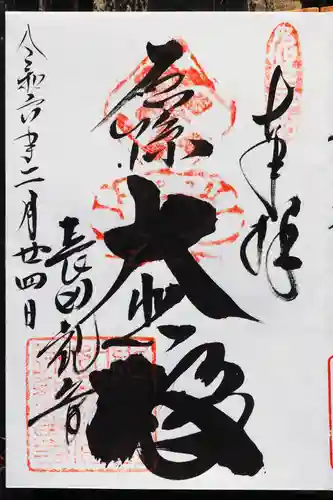 奉拝
厄除
大悲殿
長田観音
令和六年二月廿四日